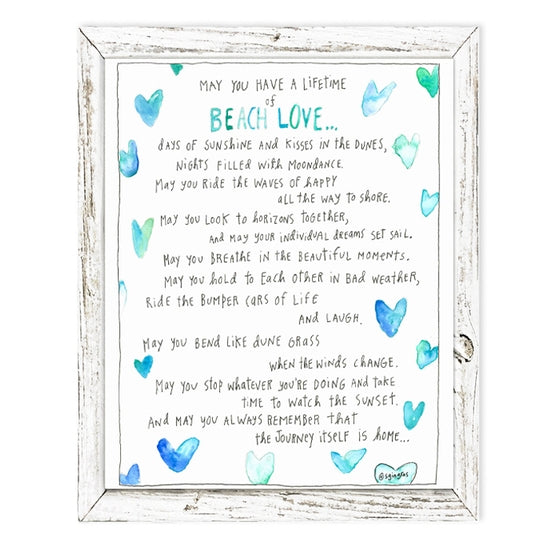 MAY YOU HAVE A LIFETIME
of
BEACH LOVE...
DAYS OF SUNSHINE AND KISSES IN THE DUNES,
NIGHTS FILLED WITH MOONDANCE.
MAY YOU RIDE THE WAVES OF HAPPY
ALL THE WAY TO SHORE.
MAY YOU LOOK TO HORIZONS TOGETHER,
AND MAY YOUR INDIVIDUAL DREAMS SET SAIL.
MAY YOU BREATHE IN THE BEAUTIFUL MOMENTS.
MAY YOU HOLD TO EACH OTHER IN BAD WEATHER,
RIDE THE BUMPER CARS OF LIFE
AND LAUGH.
MAY YOU BEND LIKE DUNE GRASS
WHEN THE WINDS CHANGE.
MAY YOU STOP WHATEVER YOU'RE DOING AND TAKE
TIME TO WATCH THE SUNSET.
AND MAY YOU ALWAYS REMEMBER THAT
THE JOURNEY ITSELF IS HOME...
@sgingras